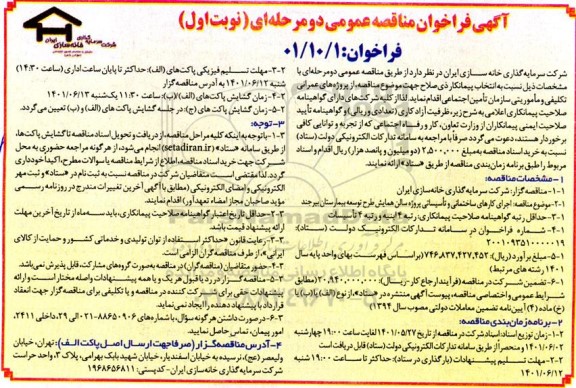 آگهی فراخوان مناقصه عمومی دو مرحله‌ای (نوبت اول)
فراخوان: ۰۱/۱۰/۱
شرکت سرمایه گذاری خانه سازی ایران
شرکت سرمایه گذاری خانه سازی ایران در نظر دارد از طریق مناقصه عمومی دو مرحله‌ای با
مشخصات ذیل نسبت به انتخاب پیمانکار ذی صلاح جهت موضوع مناقصه، از پروژه‌های عمرانی
تکلیفی و مأموریتی سازمان تأمین اجتماعی اقدام نماید. لذا از کلیه شرکت های دارای گواهینامه
صلاحیت پیمانکاری اعلامی به شرح زیر، ظرفیت آزاد کاری و ریالی و گواهینامه تأیید
صلاحیت ایمنی پیمانکاران از وزارت تعاون، کار و رفاه اجتماعی که از تجربه و توانایی کافی
برخوردار هستند، دعوت می‌گردد صرفاً با مراجعه به سامانه تدارکات الکترونیکی دولت (ستاد)
نسبت به خرید اسناد مناقصه به مبلغ ۲,۵۰۰,۰۰۰ (دو میلیون و پانصد هزار) ریال اقدام و اسناد
مربوط را طبق برنامه زمان‌بندی مناقصه از طریق «ستاد» ارائه نمایند.
۱- مشخصات مناقصه:
۱-۱- مناقصه گزار: شرکت سرمایه گذاری خانه سازی ایران
۱-۲- موضوع مناقصه: اجرای کارهای ساختمانی و تأسیساتی پروژه سالن همایش طرح توسعه بیمارستان بیرجند
۱-۳- حداقل رتبه گواهینامه صلاحیت پیمانکاری: رتبه
۱-۴- شماره فراخوان در سامانه تدارکات الکترونیک دولت (ستاد):
۲۰۰۱۰۹۳۵۱۰۰۰۰۰۱۹
۱-۵- مبلغ برآورد (ریال): ۷۴۶,۸۳۷,۴۲۷,۴۵۲ (براساس فهرست بهای واحد پایه سال
۱۴۰۱ رشته های مرتبط)
۱-۶- تضمین شرکت در مناقصه (فرآیند ارجاع کار - ریال): ۲۰,۹۴۰,۰۰۰,۰۰۰ (مطابق
شرایط عمومی و اختصاصی مناقصه، پیوست آگهی مناقصه در سامانه «ستاد» به استناد بند
(خ) ماده (۴) آیین نامه تضمین معاملات دولتی مصوب سال ۱۳۹۴)
۲- برنامه زمان بندی مناقصه:
۲-۱- زمان توزیع اسناد: اسناد شرکت در مناقصه از تاریخ ۱۴۰۱/۰۵/۲۷ لغایت ساعت ۱۹:۰۰ چهارشنبه
۱۴۰۱/۰۶/۰۲ و منحصراً از طریق سامانه تدارکات الکترونیکی دولت (ستاد) قابل دریافت است.
۲-۲- مهلت تسلیم پیشنهادات (بارگذاری در ستاد): حداکثر تا ساعت ۱۹:۰۰ شنبه
۱۴۰۱/۰۶/۱۲
۲-۳- مهلت تسلیم فیزیکی پاکت‌های (الف): حداکثر تا پایان ساعت اداری (ساعت ۱۴:۳۰)
شنبه ۱۴۰۱/۰۶/۱۲ به آدرس مناقصه گزار
۲-۴- زمان گشایش پاکت‌های (الف)، (ب): ساعت ۱۱:۳۰ یکشنبه ۱۴۰۱/۰۶/۱۳
۲-۵- زمان گشایش پاکت های (ج): در جلسه گشایش پاکت های (الف) و (ب) تعیین می گردد.
۳- توجه:
۳-۱- باتوجه به اینکه کلیه مراحل مناقصه از دریافت و تحویل اسناد مناقصه تا گشایش پاکت‌ها،
از طریق سامانه «ستاد» (setadiran.ir) انجام می شود، از هرگونه مراجعه حضوری به محل
شرکت جهت خرید اسناد مناقصه، اطلاع از شرایط مناقصه یا سوالات مطرح، اکیداً خودداری
گردد. لذا مقتضی است متقاضیان شرکت در مناقصه نسبت به ثبت نام در «ستاد» و ثبت مهر
الکترونیکی و امضای الکترونیکی (مطابق با آگهی آخرین تغییرات مندرج در روزنامه رسمی
مؤید صاحبان مجاز امضاء تعهدآور) اقدام نمایند.
۳-۲- حداقل تاریخ اعتبار گواهینامه صلاحیت پیمانکاری، باید سه ماه از تاریخ آخرین مهلت
ارائه پیشنهاد قیمت باشد.
۳-۳- رعایت قانون «حداکثر استفاده از توان تولیدی و خدماتی کشور و حمایت از کالای
ایرانی»، از طرف مناقصه گران الزامی است.
۳-۴- حضور متقاضیان (مناقصه گران) در مناقصه به صورت گروه های مشارکت، قابل پذیرش نمی باشد.
۳-۵- مناقصه گزار در رد یا قبول هر یک و یا همه پیشنهادات واصله مختار است و ارائه
پیشنهادات حقی برای شرکت کننده در مناقصه و یا تکلیفی برای مناقصه گزار جهت انعقاد
قرارداد با پیشنهاد دهنده ایجاد نمی نماید.
۳-۶- در صورت داشتن هر گونه سوال، با شماره های ۸۸۶۵۰۹۰۶-۰۲۱ الی ۲۹، داخلی ۲۴۱۱،
امور پیمان، تماس حاصل نمایید.
۴- آدرس مناقصه گزار (صرفاً جهت ارسال اصل پاکت الف): تهران، خیابان
ولیعصر (عج)، نرسیده به خیابان اسفندیار، خیابان شهید بابک بهرامی، پلاک ۳، واحد حراست
شرکت سرمایه گذاری خانه سازی ایران - کدپستی: ۱۹۶۸۶۵۶۸۱۱